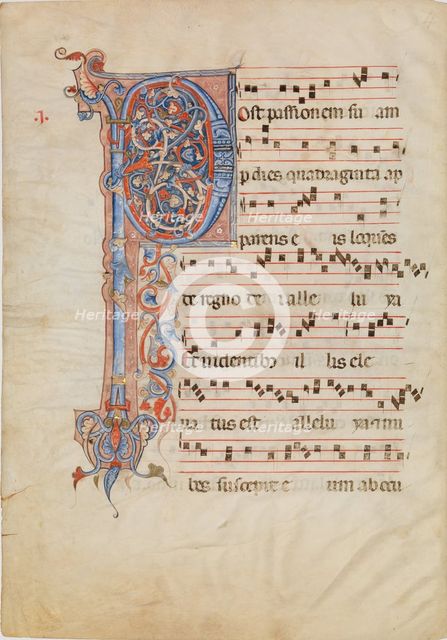 .I.
Ost passionem su am
p dies quadraginta ap
parens e is loques
de regno de i alle lu ya
Et videntibꝫ il lis ele
uatus est allelu ya nu
bes suscepit e um ab ocu
Heritage Heritage Heritage
Heritage Heritage Heritage
Heritage Heritage Heritage